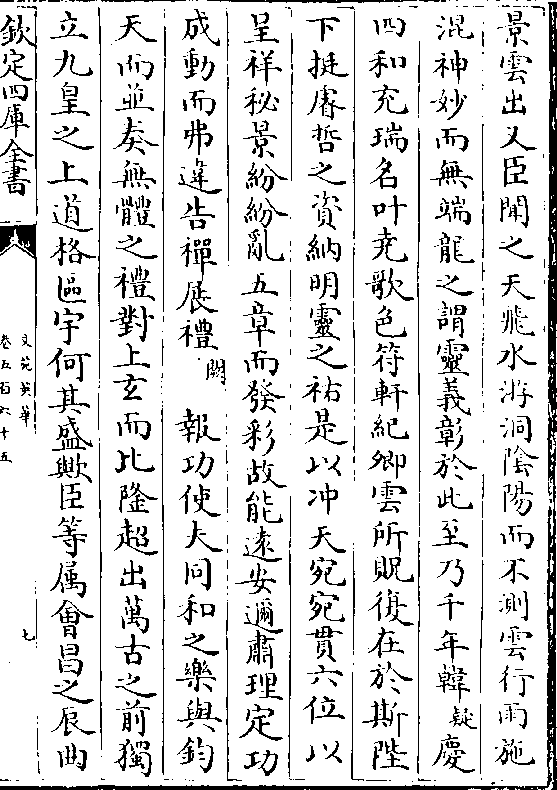 景雲出乂臣聞之天飛水游洞陰陽而不測雲行雨施
混神妙而無端龍之謂靈義彰於此至乃千年韓疑慶
四和充瑞名叶堯歌色符軒紀卿雲所貺復在於斯陛
下挺睿哲之資納明靈之祐是以冲天宛宛貫六位以
呈祥秘景紛紛亂五章而發彩故能遠安邇肅理定功
成動而弗違告禪展禮闕報功使大同和之樂與鈞
天而並奏無體之禮對上玄而比隆超出萬古之前獨
立九皇之上道格區宇何其盛歟臣等属會昌之辰曲
欽定四庫全書
文苑英華
卷五百六十五
七